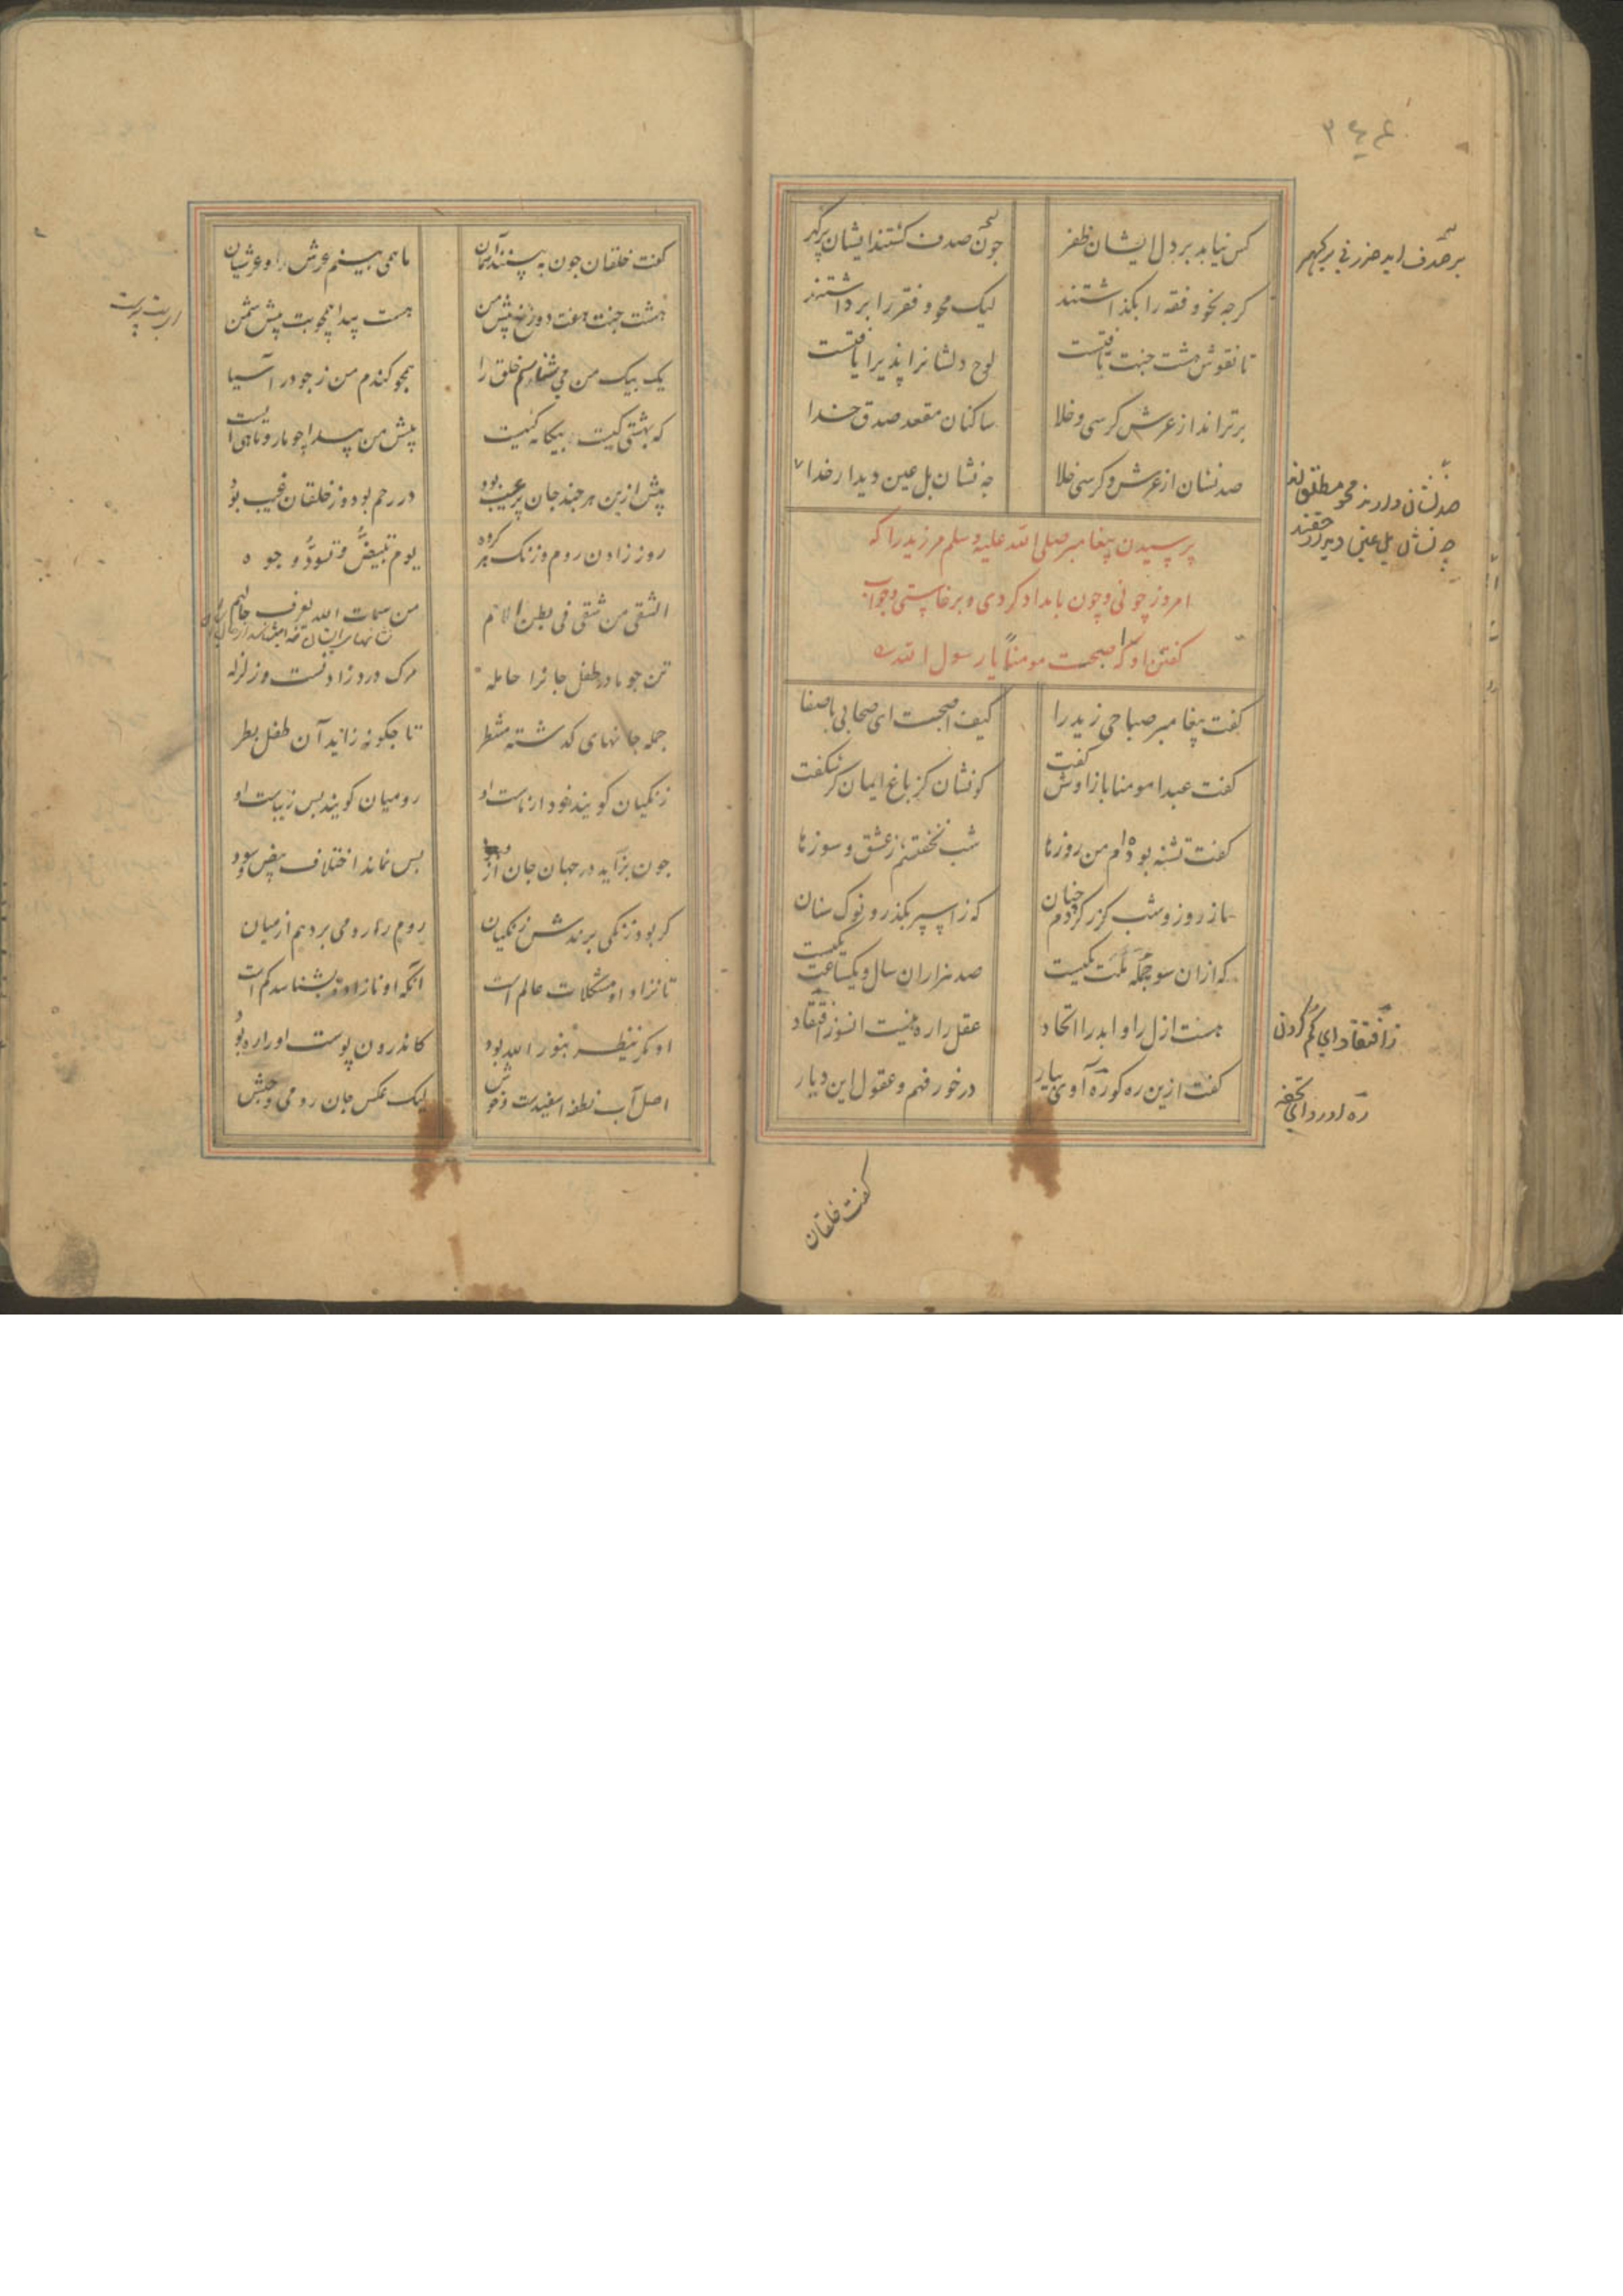 ۳۴۶
کس نیابد بر دل ایشان ظفر چون صدف کشتند ایشان پرکهر
بر صدف اید ضرر نی بر کهر
کرچه نحو و فقه را بکذاشتند لیک محو و فقر را برداشتند
تا نقوش هشت جنت یافتست لوح دلشانرا پذیرا یافتست
برترانداز عرش کرسی و خلا ساکنان مقعد صدق خدا
صد نشان از عرش و کرسی خلا چه نشان بل عین دیدار خدا
صد نشان دارند محو مطلق اند
چه نشان بل عین دیدار حقند
پرسیدن پیغامبر صلی الله علیه وسلم مر زید را که
امروز چونی و چون بامداد کردی و برخاستی و جواب
کفتن او که اصبحت مومناً یا رسول الله
کفت پیغامبر صباحی زید را کیف اصبحت ای صحابی باصفا
کفت عبدا مومنا باز اوش کفت کو نشان کز باغ ایمان کر شکفت
کفت تشنه بوده‌ام من روزها شب نخفتستم ز عشق و سوزها
تا ز روز و شب کزر کردم چنان که ز اسپر بکذرد نوک سنان
که ازان سو جمله ملت یکیست صد هزاران سال و یکساعت یکیست
هست ازل را و ابد را اتحاد عقل را ره نیست انسو ز افتقاد
ز افتقاد ای کم کردن
کفت ازین ره کو ره آوی بیار در خور فهم و عقول این دیار
ره اورد ای تحفه
کفت خلقان
کفت خلقان چون به بینند آسمان ما همی بینم عرش را و عرشیان
هشت جنت هفت دوزخ پیش من هست پیدا همچو بت پیش شمن
ای بت پرست
یک بیک من می شناسم خلق را همچو کندم من ز جو در آسیا
که بهشتی کیست و بیکانه کیست پیش من پیدا چو مار و ماهی است
پیش ازین هر چند جان پر عیب بود در رحم بود و ز خلقان غیب بود
روز زادن روم و زنک هر کروه یوم تبیض و تسود وجوه
الشقی من شقی فی بطن الام من سمات الله یعرف حالهم
تن چو مادر طفل جانرا حامله مرک درد زادنست و زلزله
جمله جانهای کدشته منتظر تا چکونه زاید آن طفل بطر
زنکیان کویند خود از ماست او رومیان کویند بس زیباست او
چون بزاید در جهان جان و جود پس نماند اختلاف بیض و سود
کر بود زنکی برندش زنکیان روم را رومی برد هم از میان
تا نزاد او مشکلات عالم است آنکه او نازاده بشناسد کم است
او مکر ینظر بنور الله بود کاندرون پوست او را ره بود
اصل آب نطفه اسفیدست و خوش لیک عکس جان رومی و حبش